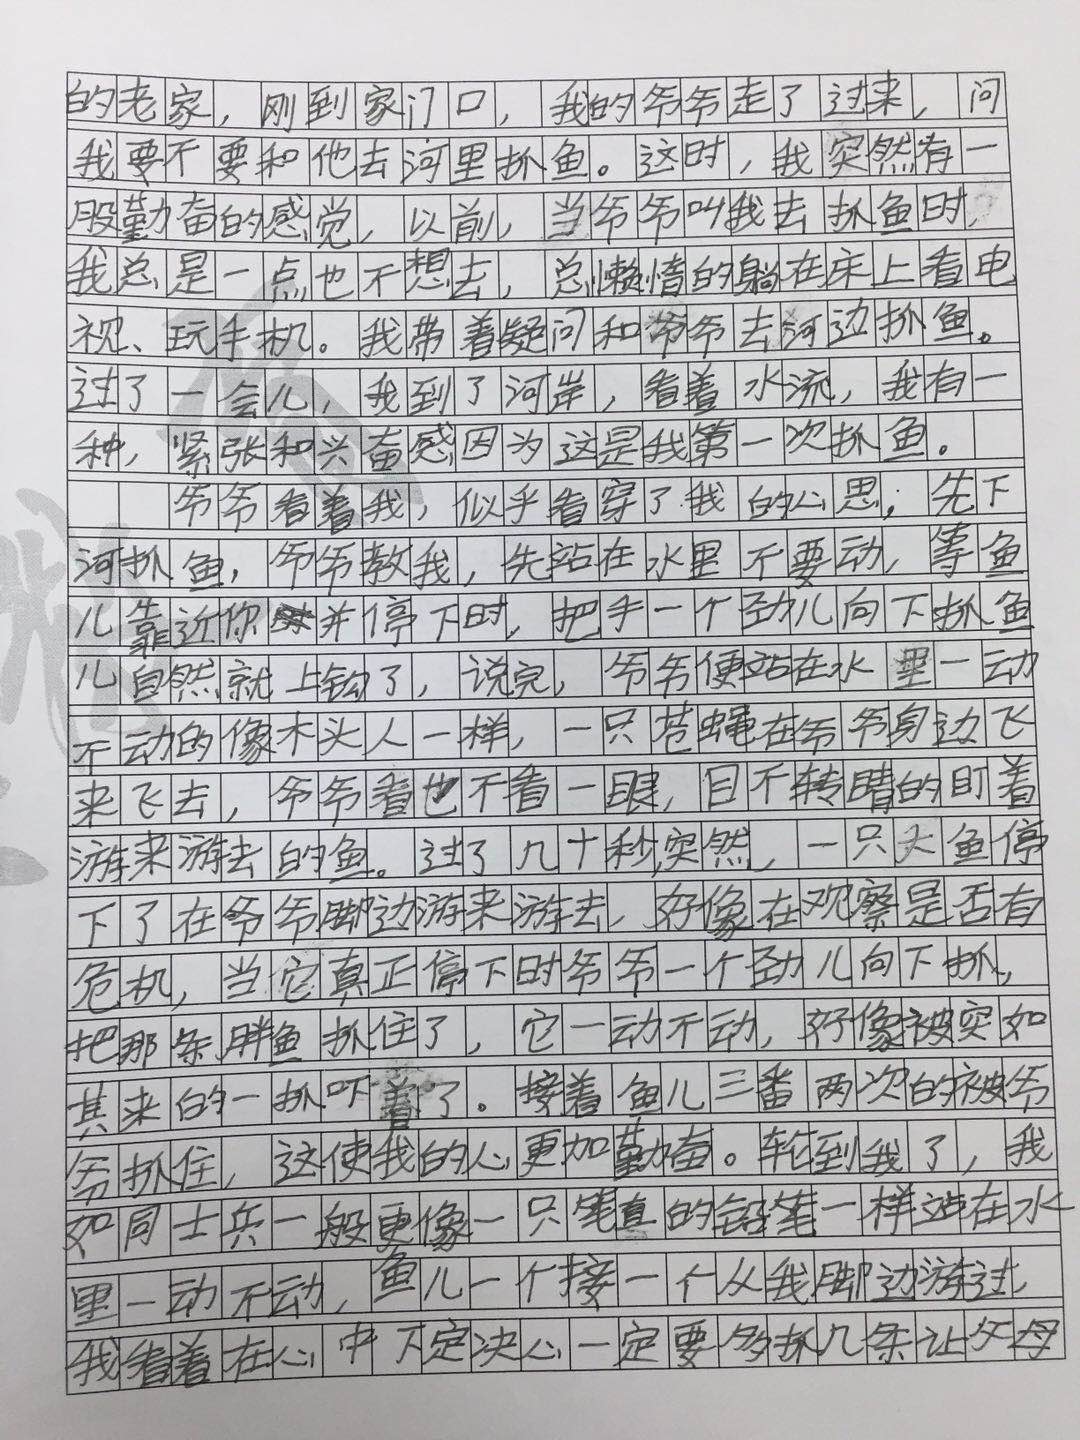 的老家，刚到家门口，我的爷爷走了过来，问
我要不要和他去河里抓鱼。这时，我突然有一
股勤奋的感觉，以前，当爷爷叫我去抓鱼时，
我总是一点也不想去，总懒惰的躺在床上看电
视、玩手机。我带着疑问和爷爷去河边抓鱼。
过了一会儿，我到了河岸，看着水流，我有一
种，紧张和兴奋感因为这是我第一次抓鱼。
爷爷看着我，似乎看穿了我的心思，先下
河抓鱼，爷爷教我，先站在水里不要动，等鱼
儿靠近你并停下时，把手一个劲儿向下抓鱼
儿自然就上钩了，说完，爷爷便站在水里一动
不动的像木头人一样，一只苍蝇在爷爷身边飞
来飞去，爷爷看也不看一眼，目不转睛的盯着
游来游去的鱼。过了几十秒，突然，一只大鱼停
下了在爷爷脚边游来游去，好像在观察是否有
危机，当它真正停下时爷爷一个劲儿向下抓，
把那条胖鱼抓住了，它一动不动，好像被突如
其来的一抓吓着了。接着鱼儿三番两次的被爷
爷抓住，这使我的心更加勤奋。轮到我了，我
如同士兵一般更像一只笔直的铅笔一样站在水
里一动不动，鱼儿一个接一个从我脚边游过，
我看着在心中下定决心一定要多抓几条让父母